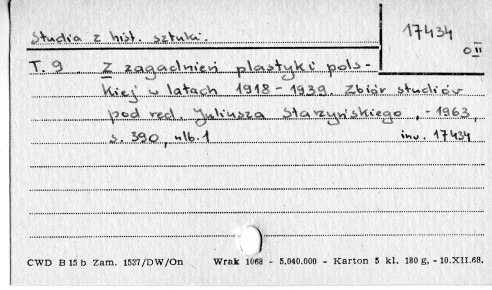 Studia z hist. sztuki.
17434
O II
T. 9 Z zagadnień plastyki pols-
kiej w latach 1918-1939. Zbiór studiów
pod red. Juliusza Starzyńskiego, - 1963,
s. 390, nlb. 1
inw. 17434
CWD B 15 b Zam. 1537/DW/On Wrak 1068 - 5.040.000 - Karton 5 kl. 180 g. - 10.XII.68.